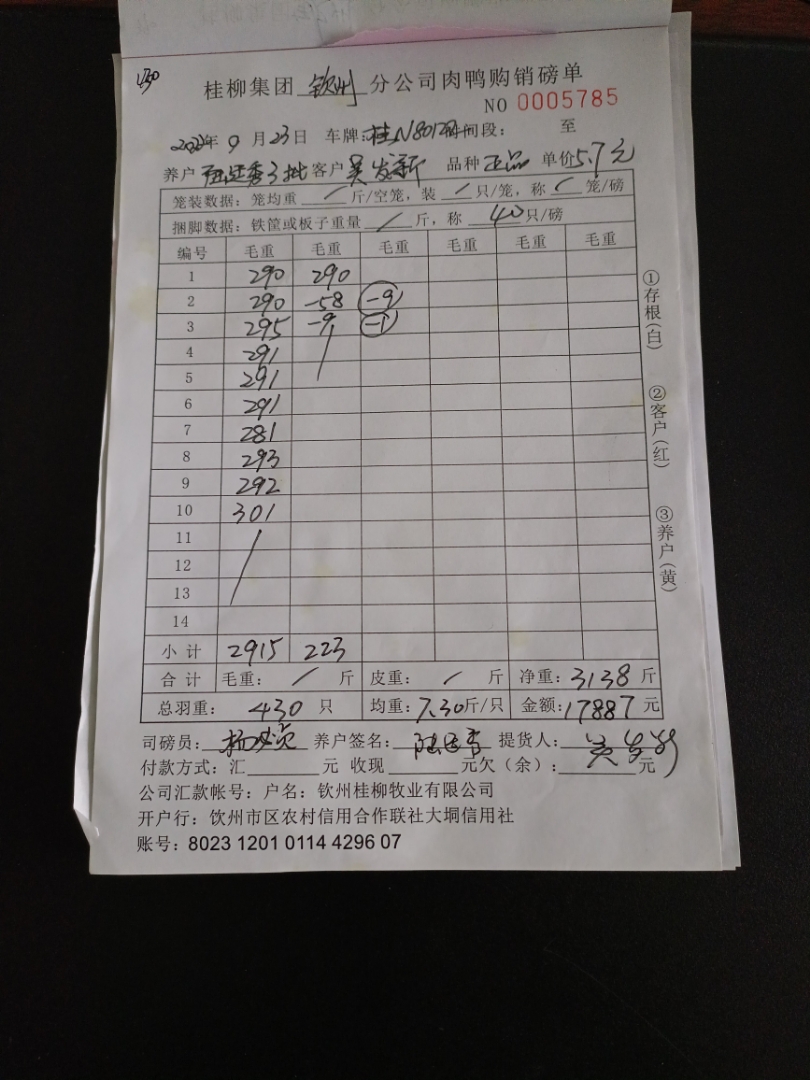 430
桂柳集团 钦州 分公司肉鸭购销磅单
NO 0005785
2022年 9 月 23日 车牌:桂N8017 时间段: 至
养户 3批 客户 吴发新 品种 正品 单价5.7元
笼装数据: 笼均重 / 斤/空笼, 装 / 只/笼, 称 / 笼/磅
捆脚数据: 铁筐或板子重量 / 斤, 称 40只/磅
编号 毛重 毛重 毛重 毛重 毛重 毛重
1 290 290
2 290 -58 -9
3 295 -9 -1
4 291 /
5 291
6 291
7 281
8 293
9 292
10 301
11 /
12
13
14
小计 2915 223
合计 毛重: / 斤 皮重: / 斤 净重: 3138 斤
总羽重: 430 只 均重: 7.30斤/只 金额: 17887 元
司磅员: 养户签名: 提货人: 吴发新
付款方式: 汇 元 收现 元欠(余): 元
公司汇款帐号: 户名: 钦州桂柳牧业有限公司
开户行: 钦州市区农村信用合作联社大垌信用社
账号: 8023 1201 0114 4296 07
①存根(白)
②客户(红)
③养户(黄)